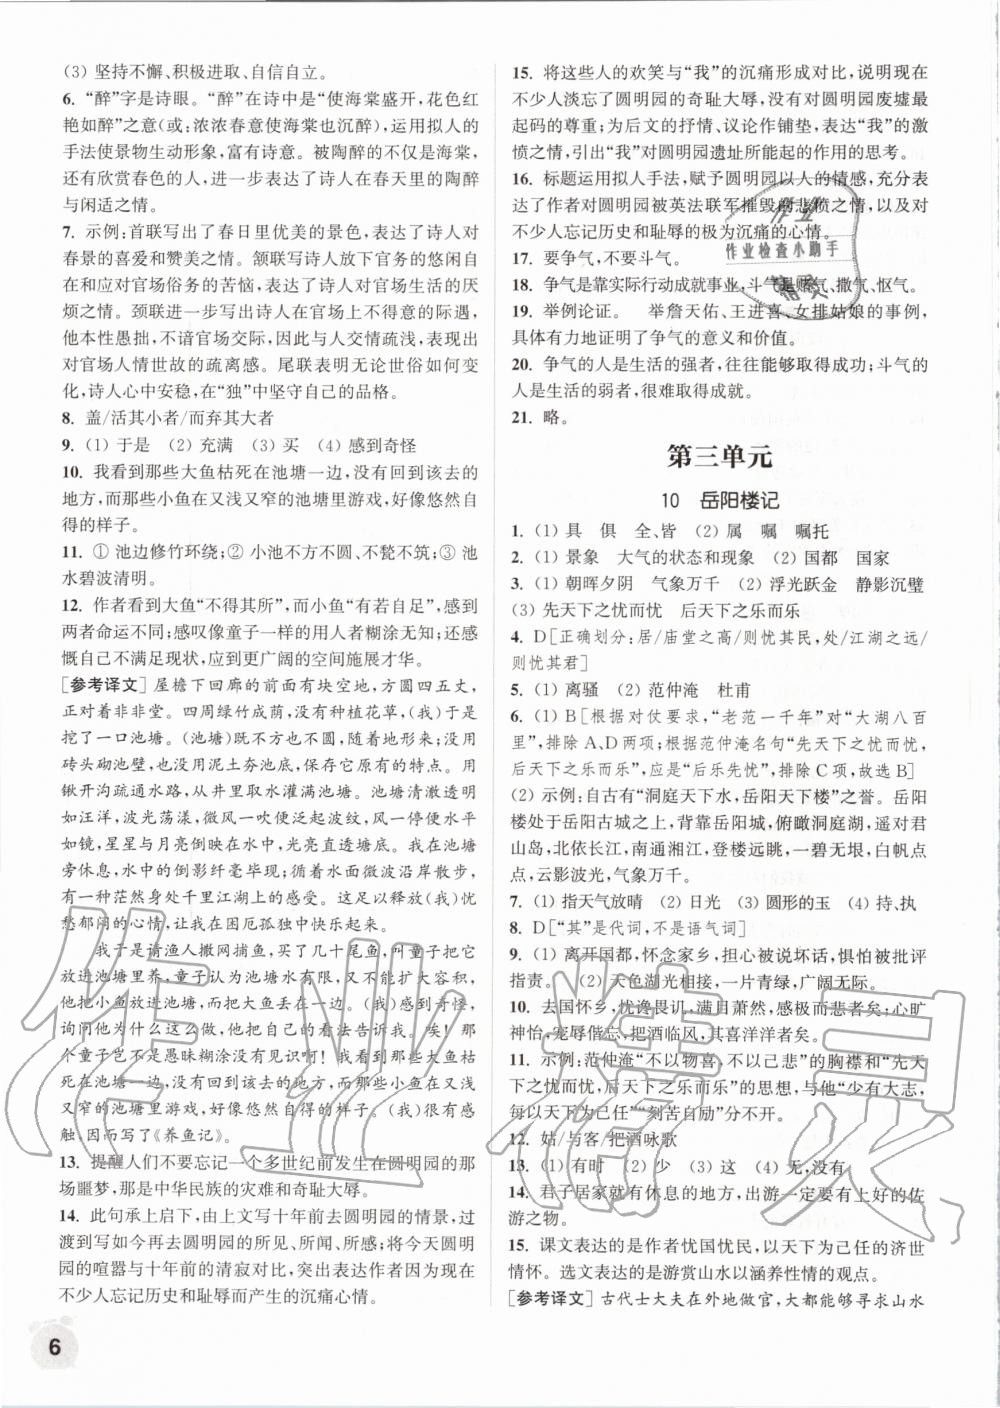 (3) 坚持不懈、积极进取、自信自立。
6. “醉”字是诗眼。“醉”在诗中是“使海棠盛开，花色红
艳如醉”之意(或：浓浓春意使海棠也沉醉)，运用拟人的
手法使景物生动形象，富有诗意。被陶醉的不仅是海棠，
还有欣赏春色的人，进一步表达了诗人在春天里的陶醉
与闲适之情。
7. 示例：首联写出了春日里优美的景色，表达了诗人对
春景的喜爱和赞美之情。颔联写诗人放下官务的悠闲自
在和应对官场俗务的苦恼，表达了诗人对官场生活的厌
烦之情。颈联表明诗人在官场上不得意的际遇，
他本性愚拙，不谙官场交际，不会人情疏浅，表现出诗人
对官场人情世故的疏离感。尾联表明无论世俗如何变
化，诗人心中安稳，在“独”中坚守自己的品格。
8. 盖/活其小者/而弃其大者
9. (1) 于是 (2) 充满 (3) 买 (4) 感到奇怪
10. 我看到那些大鱼枯死在池塘一边，没有回到该去的
地方，而那些小鱼在又浅又窄的池塘里游戏，好像悠然自
得的样子。
11. ① 池边修竹环绕；② 小池不方不圆、不甃不筑；③ 池
水碧波清明。
12. 作者看到大鱼“不得其所”，而小鱼“有若自足”，感到
两者命运不同；感叹像童子一样的用人者糊涂无知；还感
慨自己不满足现状，应到更广阔的空间施展才华。
[参考译文] 屋檐下回廊的前面有块空地，方圆四五丈，
正对着非非堂。四周绿竹成荫，没有种植花草，(我)于是
挖了一口池塘。(池塘)既不方也不圆，随着地形来；没用
砖头砌池壁，也没用泥土夯池底，保留着原有的特点。用
锹开沟疏通水路，从井里取水灌满池塘。池塘清澈透明
如汪洋，波光荡漾，微风一吹便起波纹，风一停便水平
如镜，星星与月亮倒映在水中，光亮直透塘底。我在池塘
旁休息，水中的倒影纤毫毕现；循着微波沿岸散步，
有一种茫然身处千里江湖上的感受。这足以释放(我)忧
愁郁闷的心情，让我在困厄孤独中找到快乐。
我于是请渔人撒网捕鱼，买了几十尾鱼，叫童子把它
们放进池塘里养，童子认为池塘水有限，又不能扩大容积，
他把小鱼放进池塘，把大鱼丢弃在一边。(我)感到奇怪，
询问他为什么这么做，他按自己的看法告诉我。唉！那
个童子岂不是愚昧糊涂没有见识啊！我看那些大鱼枯
死在池塘一边，没有回到该去的地方，而那些小鱼在又浅
又窄的池塘里游戏，好像悠然自得的样子。(我)很有感
触，因而写了《养鱼记》。
13. 提醒人们不要忘记一个多世纪前发生在圆明园的那
场噩梦，那是中华民族的灾难和奇耻大辱。
14. 此句承上启下，由上文写十年前去圆明园的情景，过
渡到写如今再去圆明园的所见、所闻、所感；将今天圆明
园的喧嚣与十年前的清寂对比，突出表达作者因为现在
不少人忘记历史和耻辱而产生的沉痛心情。
15. 将这些人的欢笑与“我”的沉痛形成对比，说明现在
不少人淡忘了圆明园的奇耻大辱，没有对圆明园废墟最
起码的尊重；为后文的抒情、议论作铺垫，表达“我”的激
愤之情，引出“我”对圆明园遗址所能起的作用的思考。
16. 标题运用拟人手法，赋予圆明园以人的情感，充分表
达了作者对圆明园被英法联军摧毁的悲愤之情，以及对
不少人忘记历史和耻辱的极为沉痛的心情。
17. 要争气，不要斗气。
18. 争气是靠实际行动成就事业，斗气是赌气、撒气、怄气。
19. 举例论证。 举詹天佑、王进喜、女排姑娘的事例，
具体有力地证明了争气的意义和价值。
20. 争气的人是生活的强者，往往能够取得成功；斗气的
人是生活的弱者，很难取得成就。
21. 略。
第三单元
10 岳阳楼记
1. (1) 具 俱 全、皆 (2) 属 嘱 嘱托
2. (1) 景象 大气的状态和现象 (2) 国都 国家
3. (1) 朝晖夕阴 气象万千 (2) 浮光跃金 静影沉璧
(3) 先天下之忧而忧 后天下之乐而乐
4. D[正确划分：居/庙堂之高/则忧其民，处/江湖之远/
则忧其君]
5. (1) 离骚 (2) 范仲淹 杜甫
6. (1) B[根据对仗要求，“老范一千年”对“大湖八百
里”，排除A、D两项；根据范仲淹名句“先天下之忧而忧，
后天下之乐而乐”，应是“后乐先忧”，排除C项，故选B]
(2) 示例：自古有“洞庭天下水，岳阳天下楼”之誉。岳阳
楼处于岳阳古城之上，背靠岳阳城，俯瞰洞庭湖，遥对君
山岛，北依长江，南通湘江，登楼远眺，一碧无垠，白帆点
点，云影波光，气象万千。
7. (1) 指天气放晴 (2) 日光 (3) 圆形的玉 (4) 持、执
8. D[“其”是代词，不是语气词]
9. (1) 离开国都，怀念家乡，担心被说坏话，惧怕被批评
指责。 (2) 天色湖光相接，一片青绿，广阔无际。
10. 去国怀乡，忧谗畏讥，满目萧然，感极而悲者矣；心旷
神怡，宠辱偕忘，把酒临风，其喜洋洋者矣。
11. 示例：范仲淹“不以物喜，不以己悲”的胸襟和“先天
下之忧而忧，后天下之乐而乐”的思想，与他“少有大志，
每以天下为己任”“刻苦自励”分不开。
12. 姑/与客/把酒咏歌
13. (1) 有时 (2) 少 (3) 这 (4) 无，没有
14. 君子居家就有休息的地方，出游一定要有上好的佐
游之物。
15. 课文表达的是作者忧国忧民，以天下为己任的济世
情怀。选文表达的是游赏山水以涵养性情的观点。
[参考译文] 古代士大夫在外地做官，大都能够寻求山水
作业
作业检查小助手
精灵
作业精灵
6